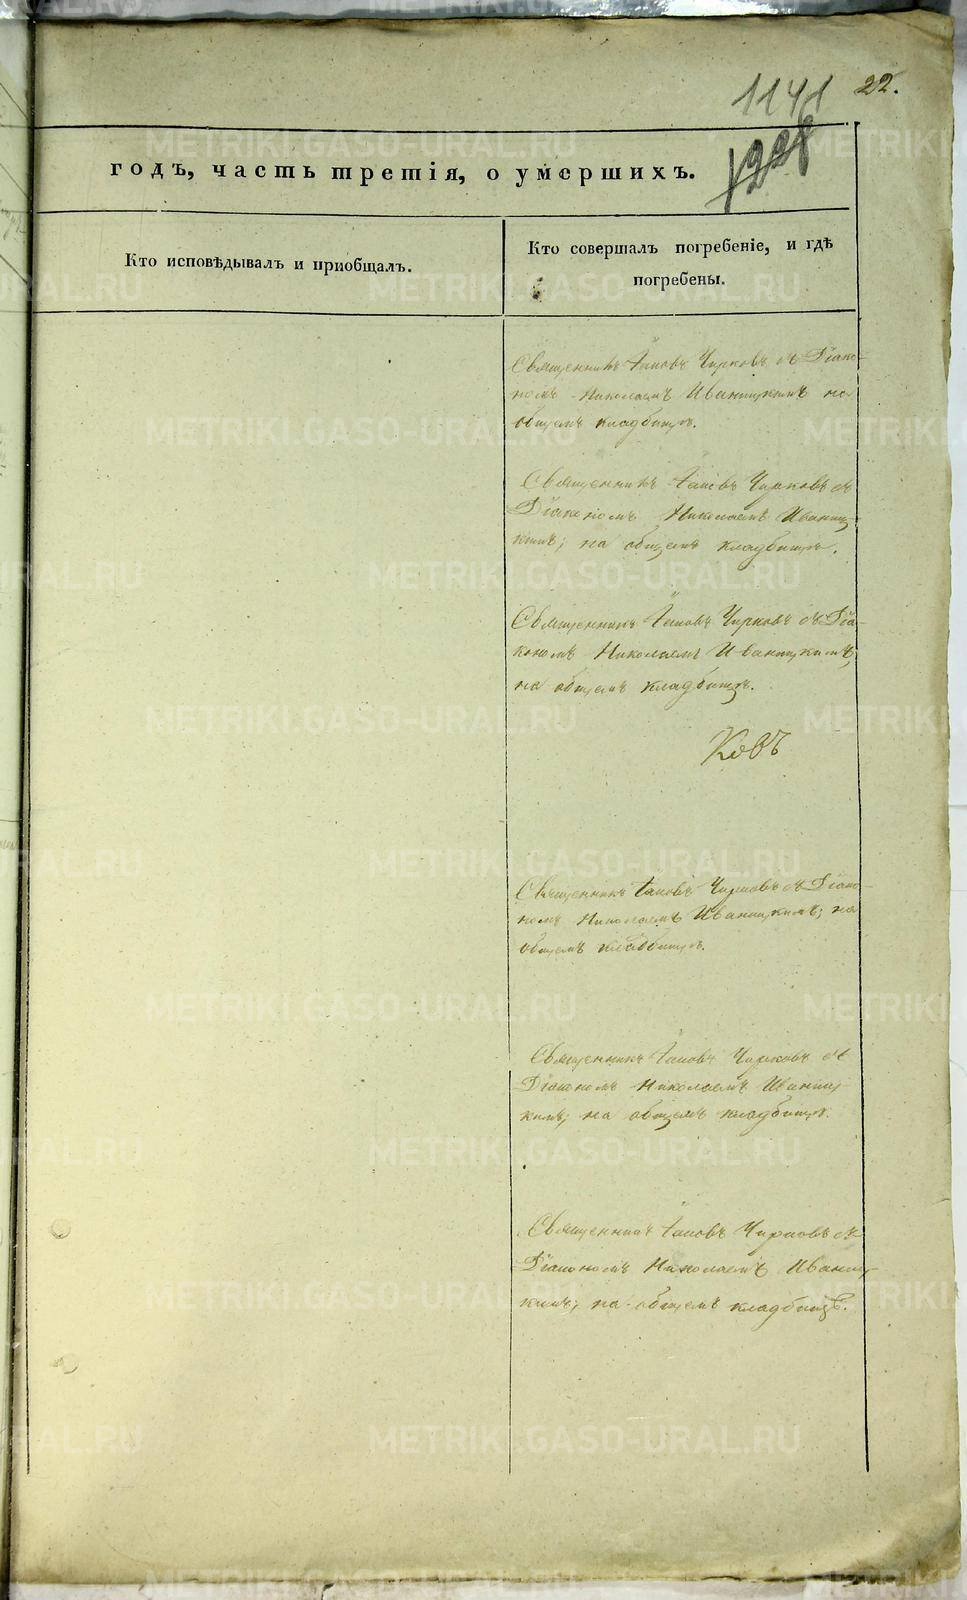 22.
1141
1228
годъ, часть третія, о умершихъ.
Кто исповѣдывалъ и приобщалъ.
Кто совершалъ погребеніе, и гдѣ
погребены.
Священникъ Іаковъ Чирковъ съ Діако-
номъ Николаемъ Иваницкимъ на
общемъ кладбищѣ.
Священникъ Іаковъ Чирковъ съ
Діакономъ Николаемъ Иваниц-
кимъ; на общемъ кладбищѣ.
Священникъ Іаковъ Чирковъ съ Діа-
кономъ Николаемъ Иваницкимъ,
на общемъ кладбищѣ.
Священникъ Іаковъ Чирковъ съ Діако-
номъ Николаемъ Иваницкимъ; на
общемъ кладбищѣ.
Священникъ Іаковъ Чирковъ съ
Діакономъ Николаемъ Иваниц-
кимъ; на общемъ кладбищѣ.
Священникъ Іаковъ Чирковъ съ
Діакономъ Николаемъ Иваниц-
кимъ; на общемъ кладбищѣ.
METRIKI.GASO-URAL.RU